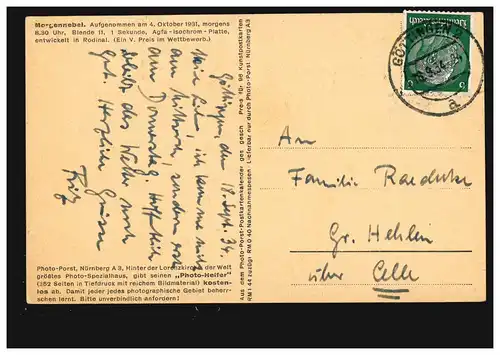 Morgennebel. Aufgenommen am 4. Oktober 1931, morgens
8.30 Uhr, Blende 11, 1 Sekunde, Agfa-Isochrom-Platte,
entwickelt in Rodinal. (Ein V. Preis im Wettbewerb.)
Göttingen, den 18. Sept. 34.
Meine Lieben, ich komme nicht
am Mittwoch, sondern erst
am Donnerstag. Hoffentlich
bleibt das Wetter noch
gut. Herzliche Grüsse
Fritz
Photo-Porst, Nürnberg A 3, Hinter der Lorenzkirche, der Welt
größtes Photo-Spezialhaus, gibt seinen „Photo-Helfer"
(252 Seiten in Tiefdruck mit reichem Bildmaterial) kosten-
los ab. Damit jeder jedes photographische Gebiet beherr-
schen lernt. Bitte unverbindlich anfordern!
Aus dem Photo-Porst-Postkartenkalender des gesch. Preis für 96 Kunstpostkarten
RM 1.44 zuzügl. RM 0.40 Nachnahmespesen. Lieferbar nur durch Photo-Porst Nürnberg A 3
GÖTTINGEN
a
6
An
Familie
Gr. Hehlen
über Celle